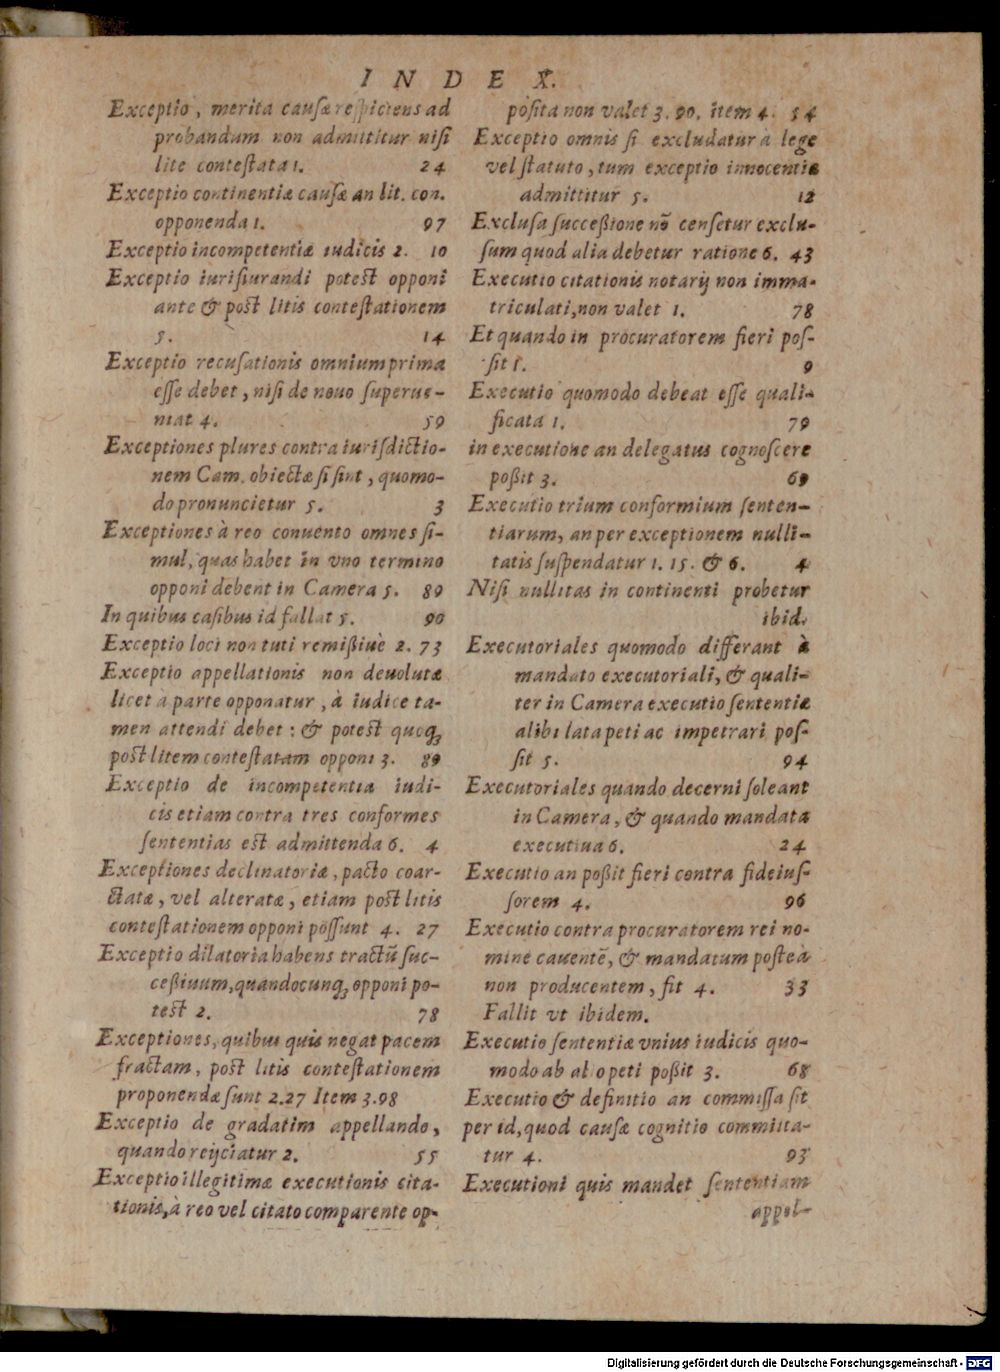 INDEX.
Exceptio, merita causæ respiciens ad
probandum non admittitur nisi
lite contestata 1. 24
Exceptio continentiæ causæ an lit. con.
opponenda 1. 97
Exceptio incompetentiæ iudicis 2. 10
Exceptio iurisiurandi potest opponi
ante & post litis contestationem
5. 14
Exceptio recusationis omnium prima
esse debet, nisi de nouo superue-
niat 4. 59
Exceptiones plures contra iurisdictio-
nem Cam. obiectæ si sint, quomo-
do pronuncietur 5. 3
Exceptiones à reo conuento omnes si-
mul, quas habet in vno termino
opponi debent in Camera 5. 89
In quibus casibus id fallat 5. 90
Exceptio loci non tuti remißiuè 2. 73
Exceptio appellationis non deuolutæ
licet à parte opponatur, à iudice ta-
men attendi debet: & potest quoq;
post litem contestatam opponi 3. 89
Exceptio de incompetentia iudi-
cis etiam contra tres conformes
sententias est admittenda 6. 4
Exceptiones declinatoriæ, pacto coar-
ctatæ, vel alteratæ, etiam post litis
contestationem opponi possunt 4. 27
Exceptio dilatoria habens tractū suc-
ceßiuum, quandocunq; opponi po-
test 2. 78
Exceptiones, quibus quis negat pacem
fractam, post litis contestationem
proponendæ sunt 2.27 Item 3.98
Exceptio de gradatim appellando,
quando reijciatur 2. 55
Exceptio illegitimæ executionis cita-
tionis, à reo vel citato comparente op-
posita non valet 3. 90. item 4. 54
Exceptio omnis si excludatur à lege
vel statuto, tum exceptio innocentiæ
admittitur 5. 12
Exclusa succeßione nō censetur exclu-
sum quod alia debetur ratione 6. 43
Executio citationis notarij non imma-
triculati, non valet 1. 78
Et quando in procuratorem fieri pos-
sit 1. 9
Executio quomodo debeat esse quali-
ficata 1. 79
in executione an delegatus cognoscere
poßit 3. 69
Executio trium conformium senten-
tiarum, an per exceptionem nulli-
tatis suspendatur 1. 15. & 6. 4
Nisi nullitas in continenti probetur
ibid.
Executoriales quomodo differant à
mandato executoriali, & quali-
ter in Camera executio sententiæ
alibi lata peti ac impetrari pos-
sit 5. 94
Executoriales quando decerni soleant
in Camera, & quando mandata
executiua 6. 24
Executio an poßit fieri contra fideius-
sorem 4. 96
Executio contra procuratorem rei no-
mine cauentē, & mandatum posteà
non producentem, fit 4. 33
Fallit vt ibidem.
Executio sententiæ vnius iudicis quo-
modo ab alio peti poßit 3. 68
Executio & definitio an commissa sit
per id, quod causæ cognitio committa-
tur 4. 93
Executioni quis mandet sententiam
appel-
Digitalisierung gefördert durch die Deutsche Forschungsgemeinschaft - DFG